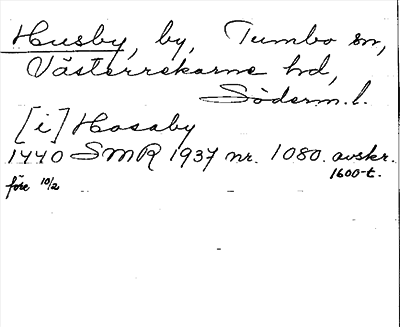 Husby, by, Tumbo sn,
Västerrekarne hd,
Söderm. l.
[i] Hosaby
1440 SMR 1937 nr. 1080. avskr.
1600-t.
före 10/2